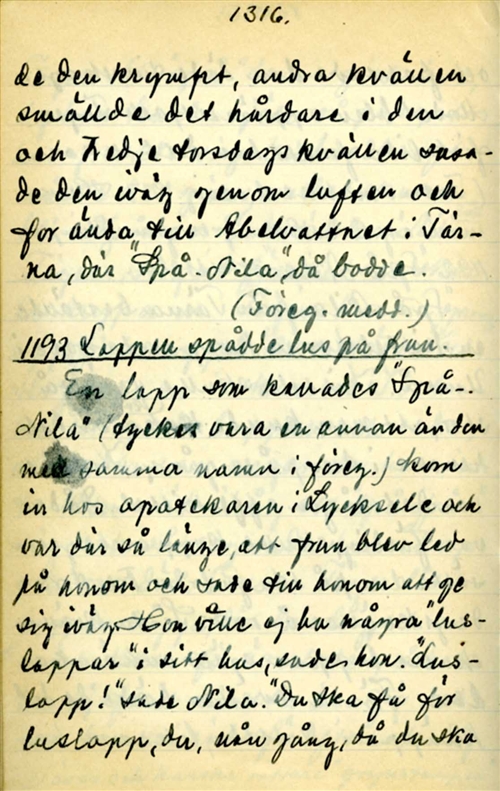 1316.
de den krympt, andra kvällen
smällde det hårdare i den
och tredje torsdagskvällen susa-
de den iväg genom luften och
for ända till Abelvattnet i Tär-
na, där "Spå-Nila" då bodde.
(Föreg. medd.)
1193 Lappen spådde lus på frun.
En lapp som kallades "Spå-
Nila" (tyckes vara en annan än den
med samma namn i föreg.) kom
in hos apotekaren i Lycksele och
var där så länge, att frun blev led
på honom och sade till honom att ge
sig iväg. Hon ville ej ha några "lus-
lappar" i sitt hus, sade hon. "Lus-
lapp!" sade Nila. "Du ska få för
luslapp, du, nån gång, då du ska